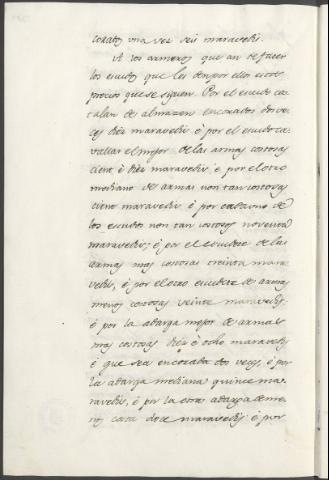 corados una vez seis maravedis.
A los armeros que an de facer
los escudos que les den por ellos estos
precios que se siguen. Por el escudo ca-
talan de almazem encorados dos ve-
ces diez maravedis é por el escudo ca-
vallar el mejor de las armas costosas
ciento é diez maravedis é por el otro
mediano de armas non tan costosas
ciento maravedis é por cada uno de
los escudos non tan costosos noventa
maravedis; é por el escudete de las
armas mas costosas treinta mara-
vedis, é por el otro escudete de armas
menos costosas veinte maravedis.
é por la adarga mejor de armas
mas costosas diez é ocho maravedis
é que sea encorada dos veces, é por
la adarga mediana quince ma-
ravedis, é por la otra adarga de me-
nos costa doce maravedis: é por